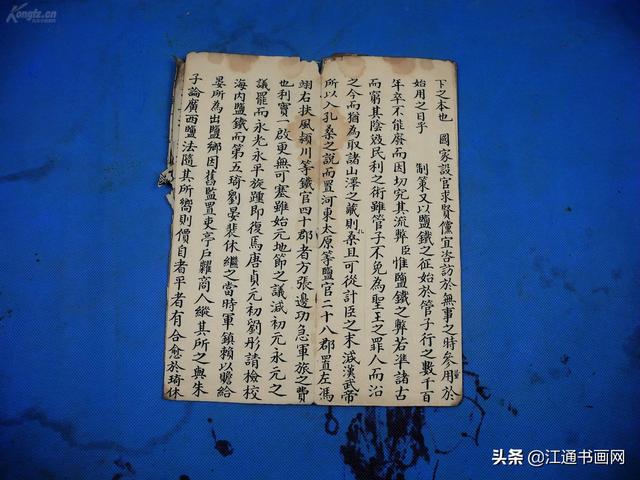 下之本也　國家設官求賢儻宜咨訪於無事之時參用於
始用之日乎　制策又以鹽鐵之征始於管子行之數千百
年卒不能廢而因切究其流弊臣惟鹽鐵之弊若準諸古
而窮其陰殺民利之術雖管子不免為聖王之罪人而沿
之今而猶為取諸山澤之藏則桑孔且可從計臣之末減漢武帝
所以入孔桑之說而置河東太原等鹽官二十八郡置左馮
翊右扶風潁川等鐵官四十郡者方張邊功急軍旅之費
也利竇一啟更無可塞雖始元地節之議減初元永元之
議罷而永光永平旋踵即復馬唐貞元初劉彤請檢校
海内鹽鐵而第五琦劉晏裴休繼之當時軍鎮賴以贍給
晏所為出鹽鄉因舊監置吏亭戶糶商人縱其所之與朱
子論廣西鹽法隨其所嚮則價自者平者有合愈於琦休
Kongfz.cn
头条 @江通书画网